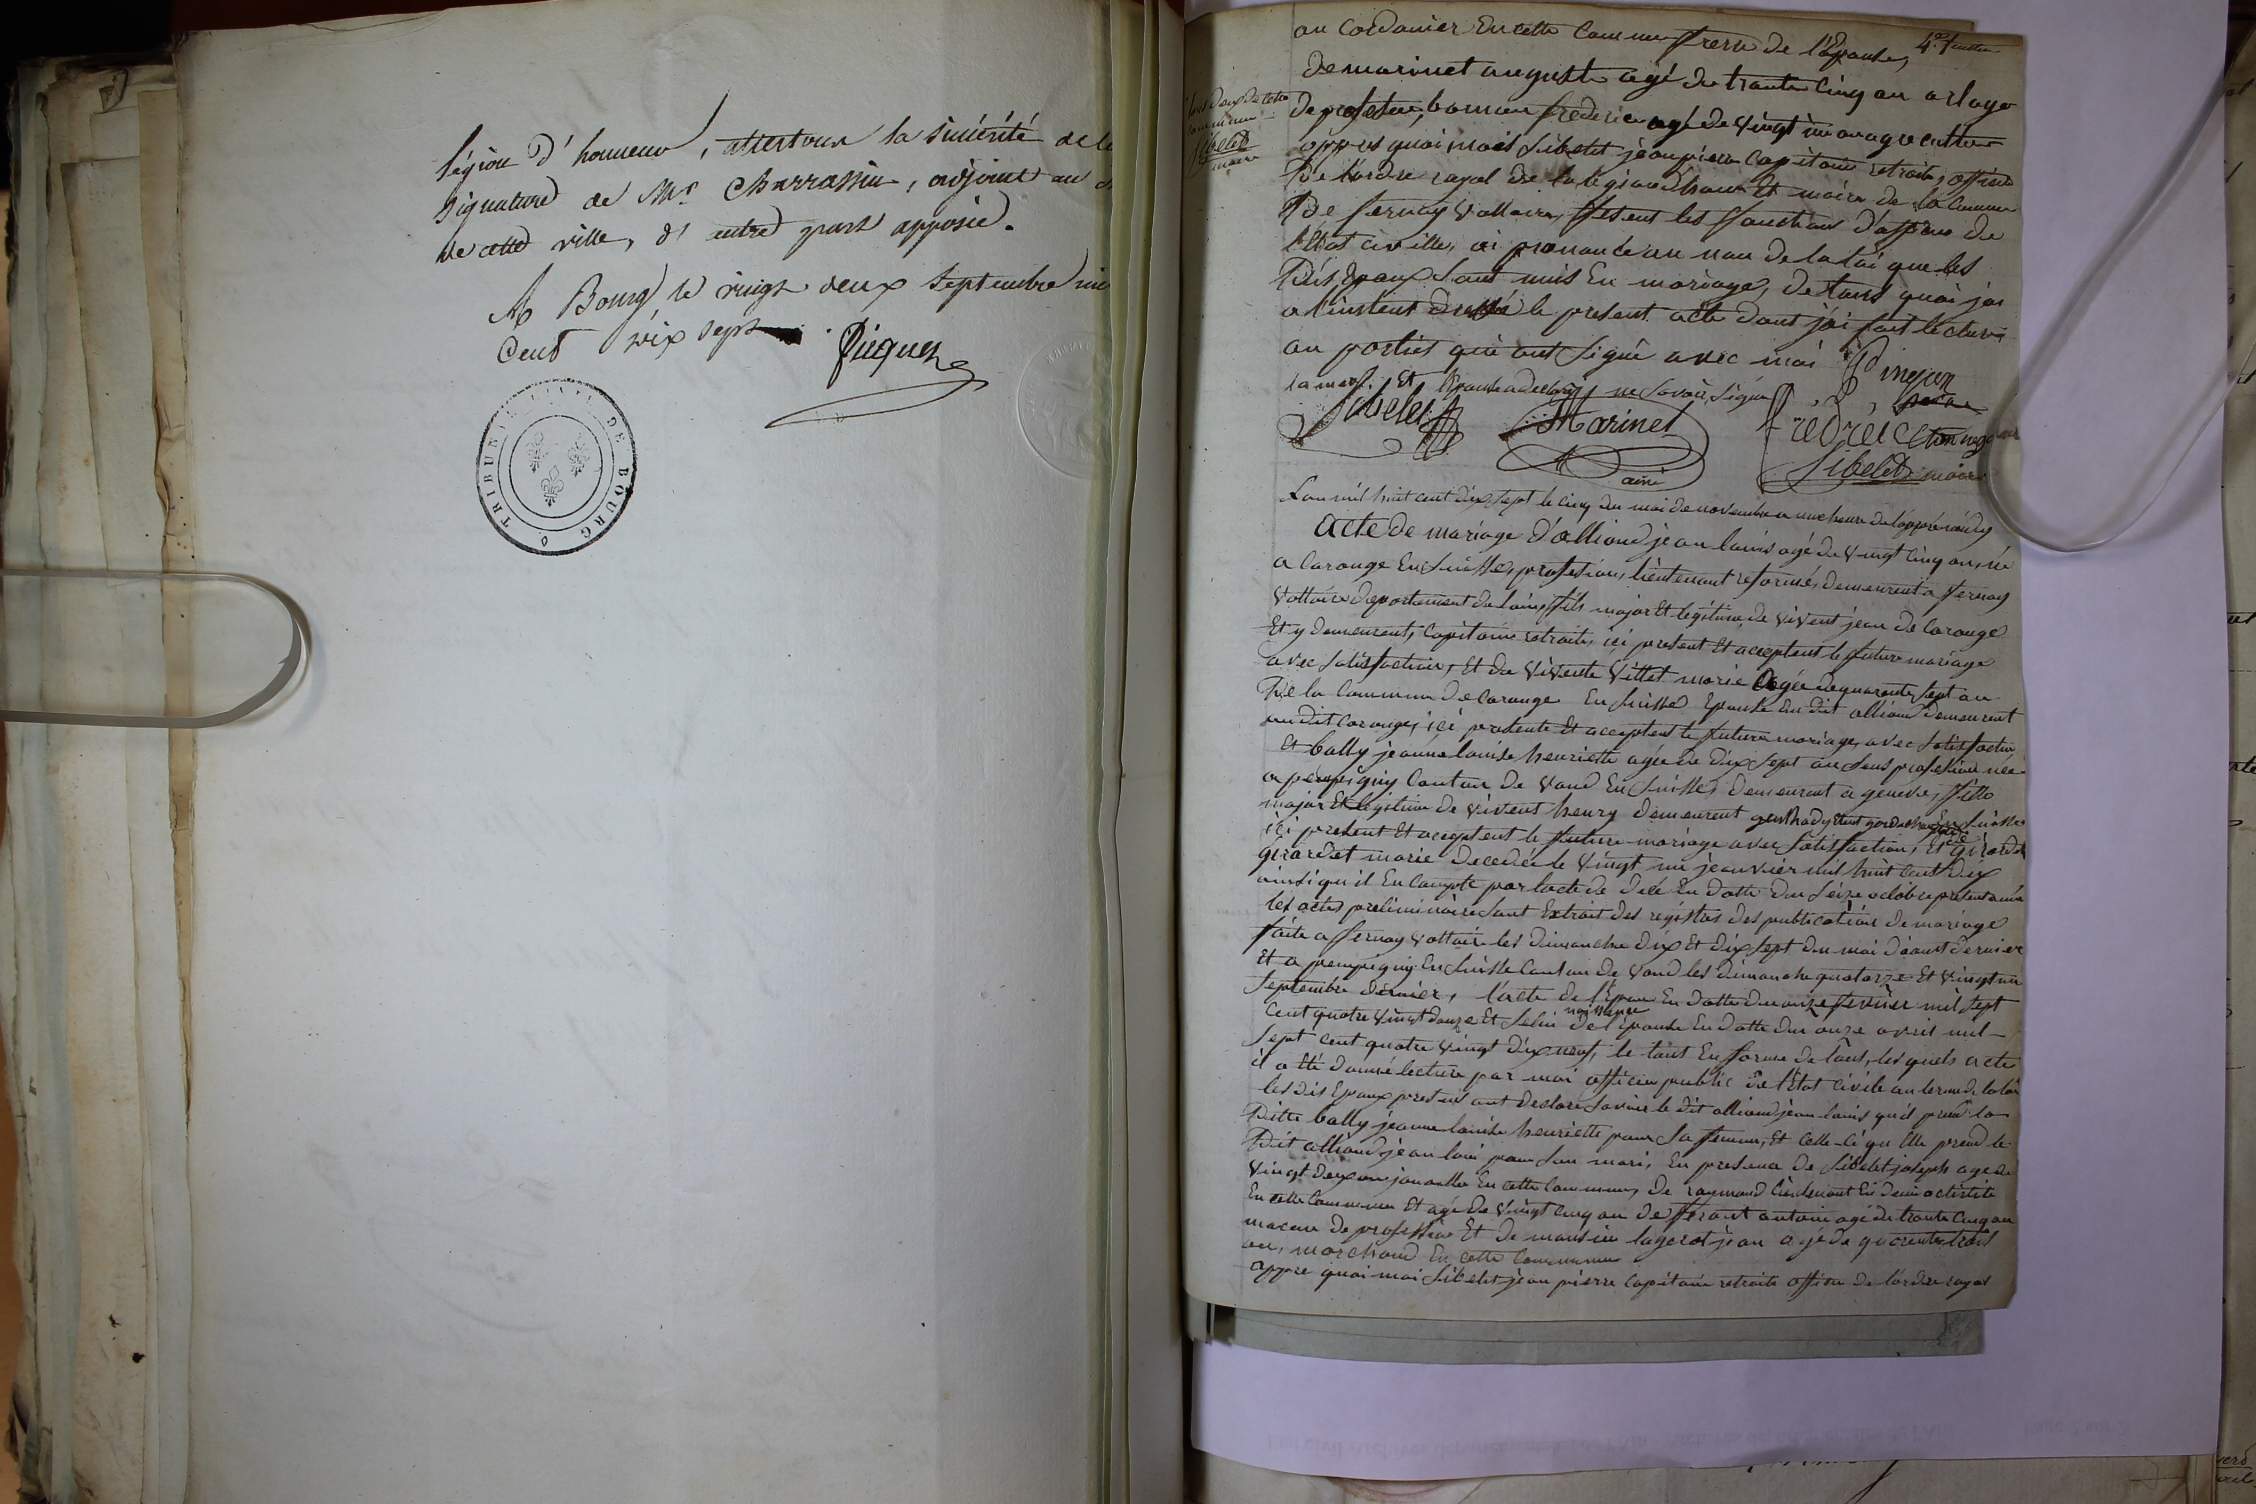 légion d'honneur, attestons la sincérité de l
signature de Mr. Charrassin, adjoint au
de cette ville, d'autre part apposée.
A Bourg le vingt deux septembre mi
cent dix sept
Piquet
TRIBUN DE BOURG
an cordonier En cette Commune frere de l'Epouse, 4e
de marinet auguste agé de trante cinq an orloge
de profession, frederic agé de vingt un an
appres quoi moi Sibelet jean pierre Capitaine retraite, officie
De l'ordre royal de la legion d'honeur Et maire de la Commune
De fernay Voltaire, fesent les fonction d'officie de
l'Etat civille, ai prononcé au nom De la loi que les
Dis Epoux Sont unis En mariage, De tous quoi j'ai
a l'instent dressé le present acte dont j'ai fait lecture
au parties qui ont Signé avec moi
la mere Et l'Epouse a declaré ne Savoir Signé
Sibelet Marinet fredreic
ainé Sibelet maire
Sibelet
maire
L'an mil huit cent dix sept le cinq du moi de novembre a une heure de l'appré midy
Acte de mariage d'alliond jean louis agé de vingt cinq an, né
a Carouge En Suisse, profession, lieutenant reformé, Demeurent a fernay
Voltaire departement de l'ain, fils major Et legitime de vivent jean de Carouge
Et y demeurent, Capitaine retraite, ici present Et acceptent le future mariage
avec Satisfaction, Et de vivente Villet marie agée de quarante sept an
De la Commune De Carouge En Suisse Epouse du dit alliond demeurent
au dit Carouge, ici presente Et acceptent le future mariage, avec Satisfaction
Et bally jeanne louise henriette agée de Dix Sept an Sans profession née
a pempigny Canton De Vaud En Suisse, demeurant a geneve, fille
major Et legitime de vivent henry demeurent En Suisse
ici present Et acceptent le future mariage avec Satisfaction, Et de girardet
girardet marie Decedée le vingt un jeanvier mil huit Cent Dix
ainsi qu'il En Compte par l'acte de decé En datte du Seize octobre present année
les actes preliminaire Sont Extrait des registres des publication de mariage
faite a fernay Voltaire les Dimanche Dix Et dix Sept du moi d'aoust dernier
Et a pempigny En Suisse Canton De Vaud les dimanche quatorze Et vingt un
Septembre dernier, l'acte de l'Epoux En datte du onze fevrier mil Sept
Cent quatre vingt douze Et Selui naissance de l'epouse En datte du onze avril mil
Sept cent quatre vingt dix neuf, le tout En forme de lois, les quels acte
il a été donné lecture par moi officie public de l'Etat Civile au terme de la loi
les dis Epoux present ont declare Savoir le dit alliond jean louis qu'il prend la
Ditte bally jeanne louise henriette pour Sa femme, Et celle-ci qu'Elle prend le
Dit alliond jean loui pour Son mari, En presence de Sibelet joseph agé de
Vingt deux an En cette Commune, De raymond lieutenant En demi activite
En cette Commune Et agé De vingt cinq an De ferant antoine agé de trante cinq an
macon De profession Et De monsieur lagerot jean agé de quarente trois
an, marchand En cette Commune
appre quoi moi Sibelet jean pierre Capitaine retraite officie de l'ordre royal